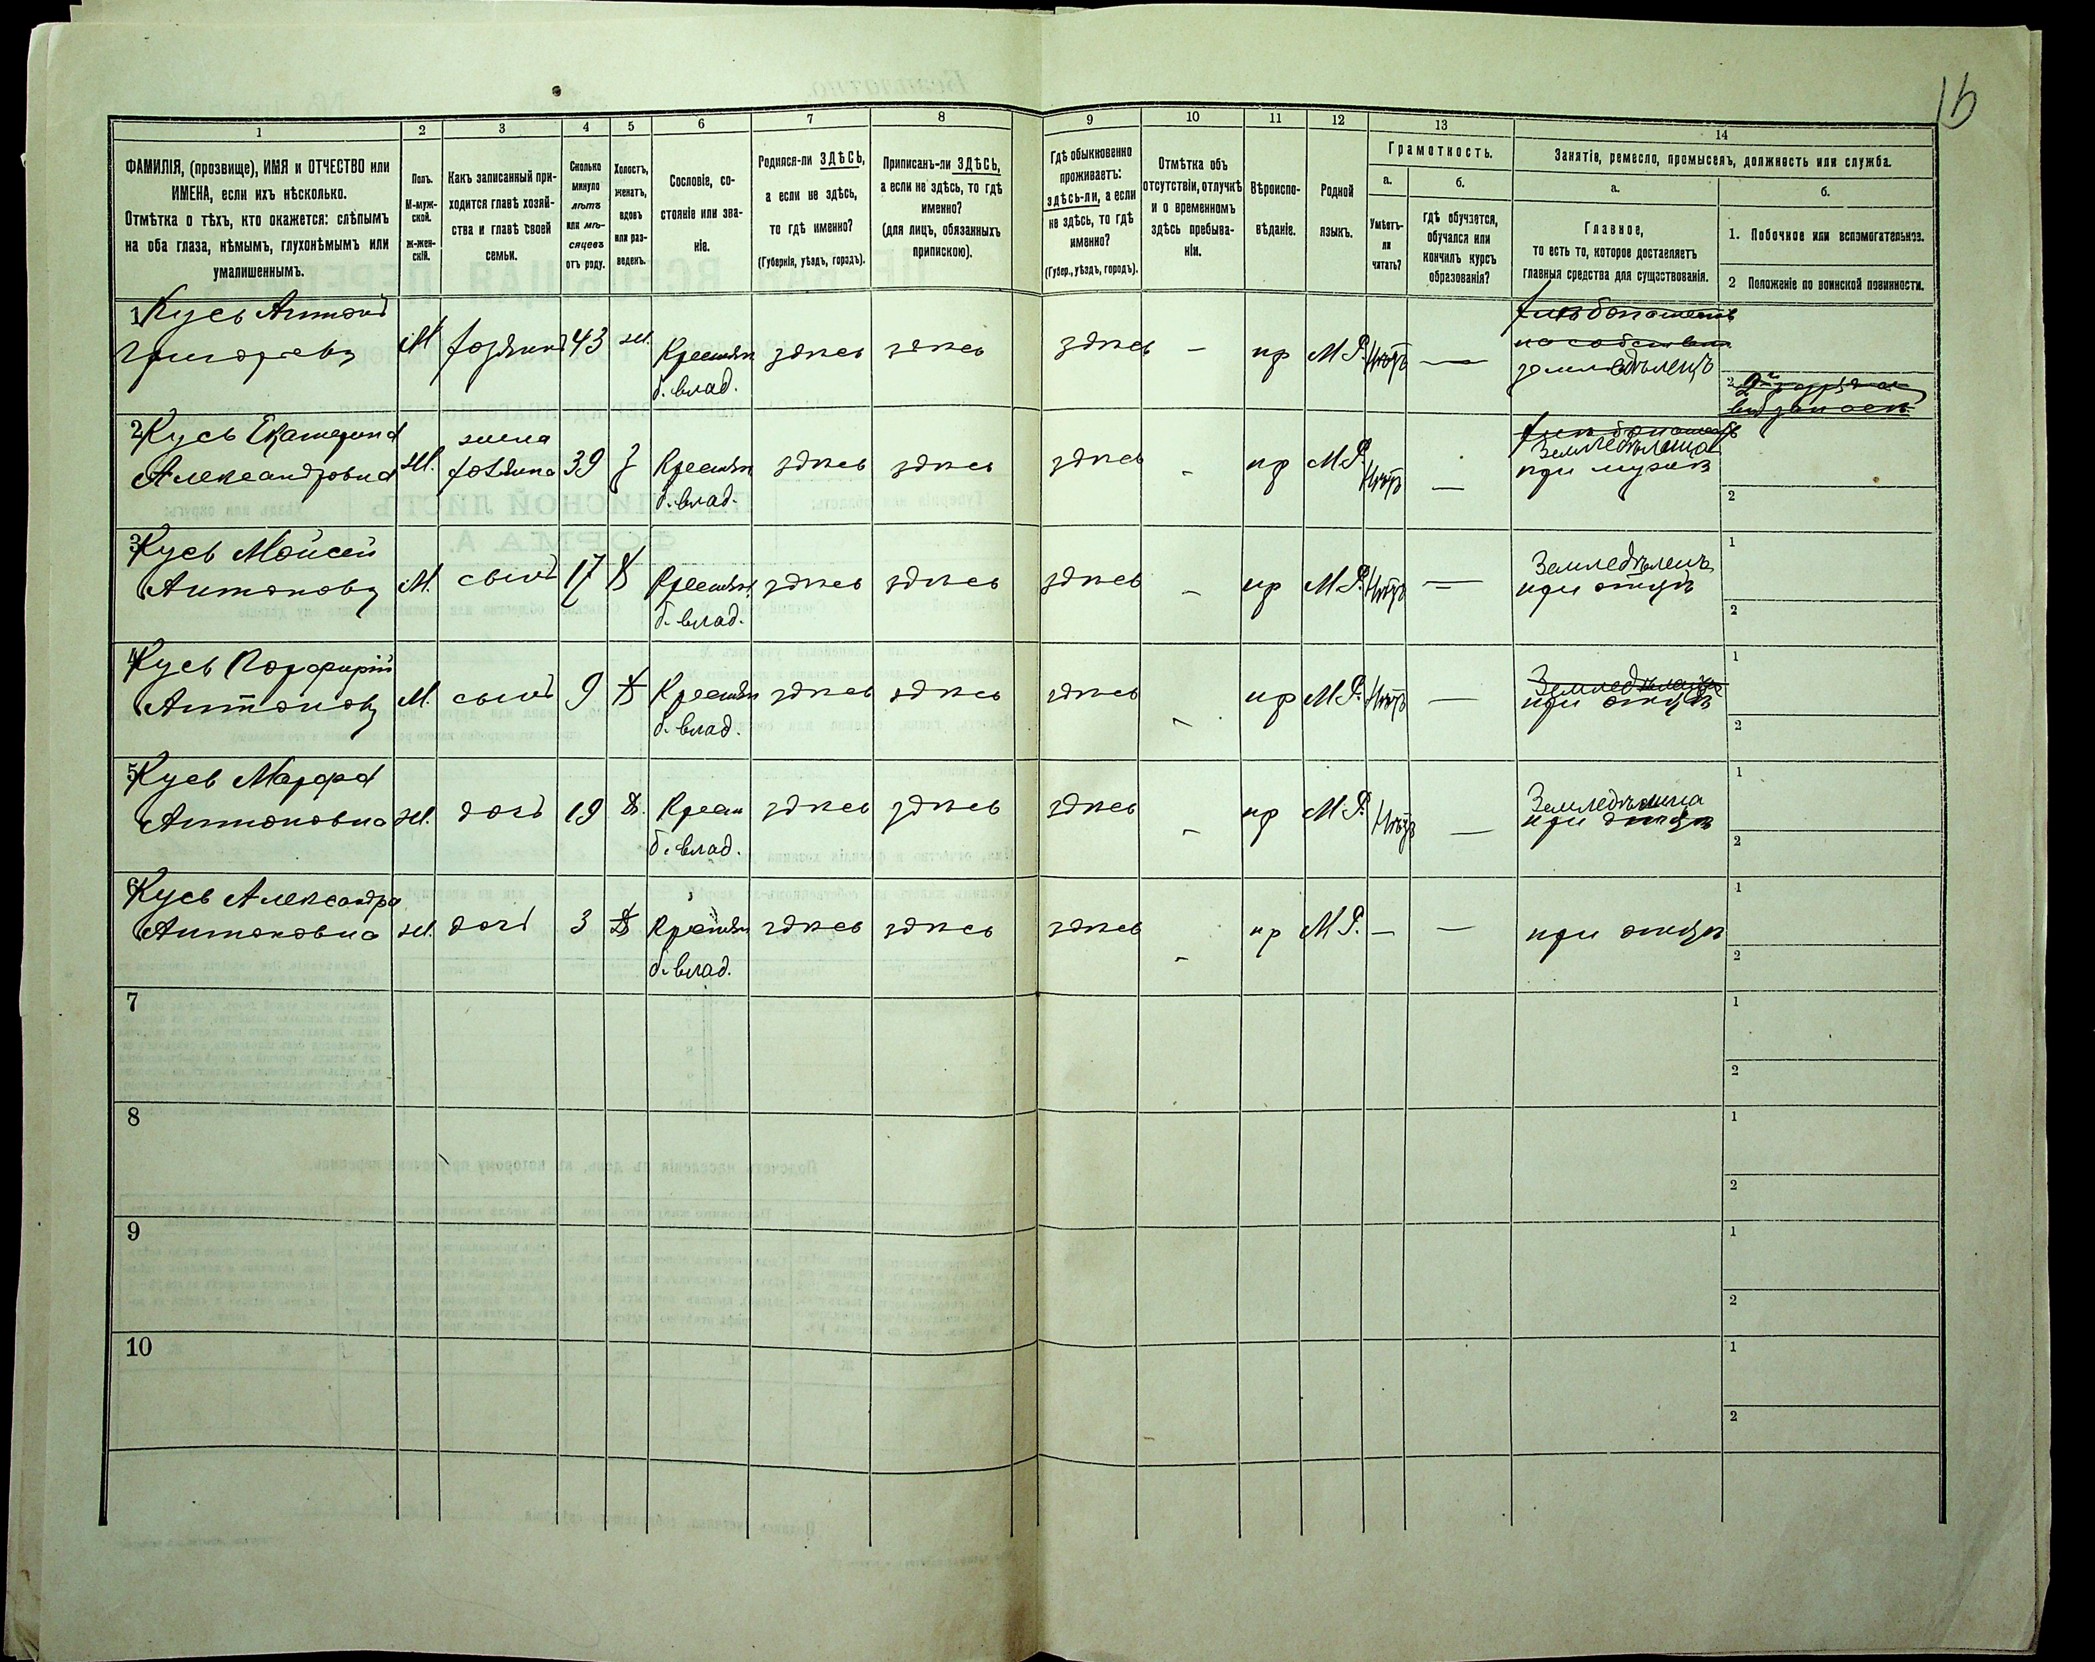 16
1
2
3
4
5
6
7
8
9
10
11
12
13
14
ФАМИЛІЯ, (прозвище), ИМЯ и ОТЧЕСТВО или
ИМЕНА, если ихъ нѣсколько.
Отмѣтка о тѣхъ, кто окажется: слѣпымъ
на оба глаза, нѣмымъ, глухонѣмымъ или
умалишеннымъ.
Полъ.
М-муж-
ской.
ж-жен-
скій.
Какъ записанный при-
ходится главѣ хозяй-
ства и главѣ своей
семьи.
Сколько
минуло
лѣтъ
или мѣ-
сяцевъ
отъ роду.
Холостъ,
женатъ,
вдовъ
или раз-
веденъ.
Сословіе, со-
стояніе или зва-
ніе.
Родился-ли ЗДѢСЬ,
а если не здѣсь,
то гдѣ именно?
(Губернія, уѣздъ, городъ).
Приписанъ-ли ЗДѢСЬ,
а если не здѣсь, то гдѣ
именно?
(для лицъ, обязанныхъ
припискою).
Гдѣ обыкновенно
проживаетъ:
здѣсь-ли, а если
не здѣсь, то гдѣ
именно?
(Губер., уѣздъ, городъ).
Отмѣтка объ
отсутствіи, отлучкѣ
и о временномъ
здѣсь пребыва-
ніи.
Вѣроиспо-
вѣданіе.
Родной
языкъ.
Грамотность.
а.
Умѣетъ-
ли
читать?
б.
гдѣ обучается,
обучался или
кончилъ курсъ
образованія?
Занятіе, ремесло, промыселъ, должность или служба.
а.
Главное,
то есть то, которое доставляетъ
главныя средства для существованія.
б.
1. Побочное или вспомогательное.
2 Положеніе по воинской повинности.
1 Кусь Антонъ
Григорьевъ
М хозяинъ 43 ж. Крестьян б. влад. здѣсь здѣсь здѣсь – пр М.Р. Нѣтъ —
земледѣлецъ
2
2 Кусь Екатерина
Александровна
ж. жена хозяина 39 з Крестьян б. влад. здѣсь здѣсь здѣсь – пр М.Р. Нѣтъ —
Земледѣлица
при мужѣ
2
3 Кусь Мойсей
Антоновъ
М. сынъ 17 х Крестьян б. влад. здѣсь здѣсь здѣсь – пр М.Р. Нѣтъ —
Земледѣлецъ
при отцѣ
1
2
4 Кусь Порфирій
Антоновъ
М. сынъ 9 х Крестьян б. влад. здѣсь здѣсь здѣсь – пр М.Р. Нѣтъ —
при отцѣ
1
2
5 Кусь Марфа
Антоновна
ж. дочь 19 д. Крестьян б. влад. здѣсь здѣсь здѣсь – пр М.Р. Нѣтъ —
Земледѣлица
при отцѣ
1
2
6 Кусь Александра
Антоновна
ж. дочь 3 д Крестьян б. влад. здѣсь здѣсь здѣсь – пр М.Р. – —
при отцѣ
1
2
7
1
2
8
1
2
9
1
2
10
1
2